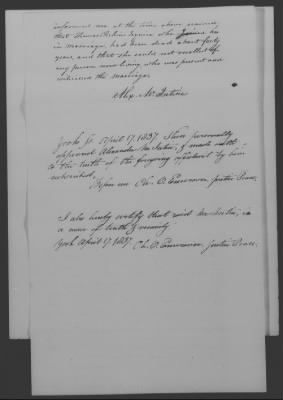 informed me at the time above mentioned,
that Thomas Perkins Esquire who joined us
in marriage, had been dead about forty
years, and that she could not recollect of
any person now living who was present and
witnessed the marriage.
Alex. McIntire
York ss. April 17. 1837. Then personally
appeared Alexander McIntire, & made oath
to the truth of the foregoing affidavit by him
subscribed.
Before me Ch. O. Emerson, Justice Peace.
I also hereby certify that said McIntire, is
a man of truth & veracity
York April 17. 1837. Ch. O. Emerson, Justice Peace.